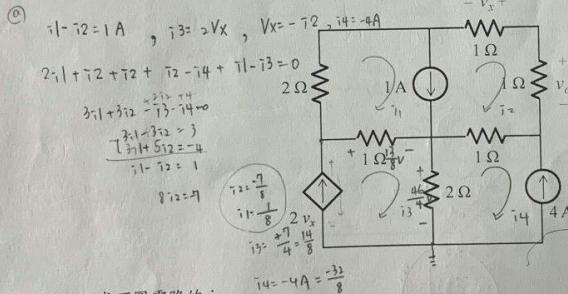 (a)
i1-i2=1A , i3=2Vx , Vx=-i2 , i4=-4A
2i1+i2+i2+ i2-i4+ i1-i3=0
3i1+3i2-i3-i4=0
+2i2 +4
3i1-3i2=3
3i1+5i2=-4
i1-i2=1
8i2=-7
i2=-7/8
i1=1/8
i3=+7/4=14/8
i4=-4A=-32/8
- vx +
1Ω
2Ω
1 A
1Ω
i1
i2
+
+ 1Ω
-
1Ω
+
2Ω
-
2 vx
i3
i4
4 A